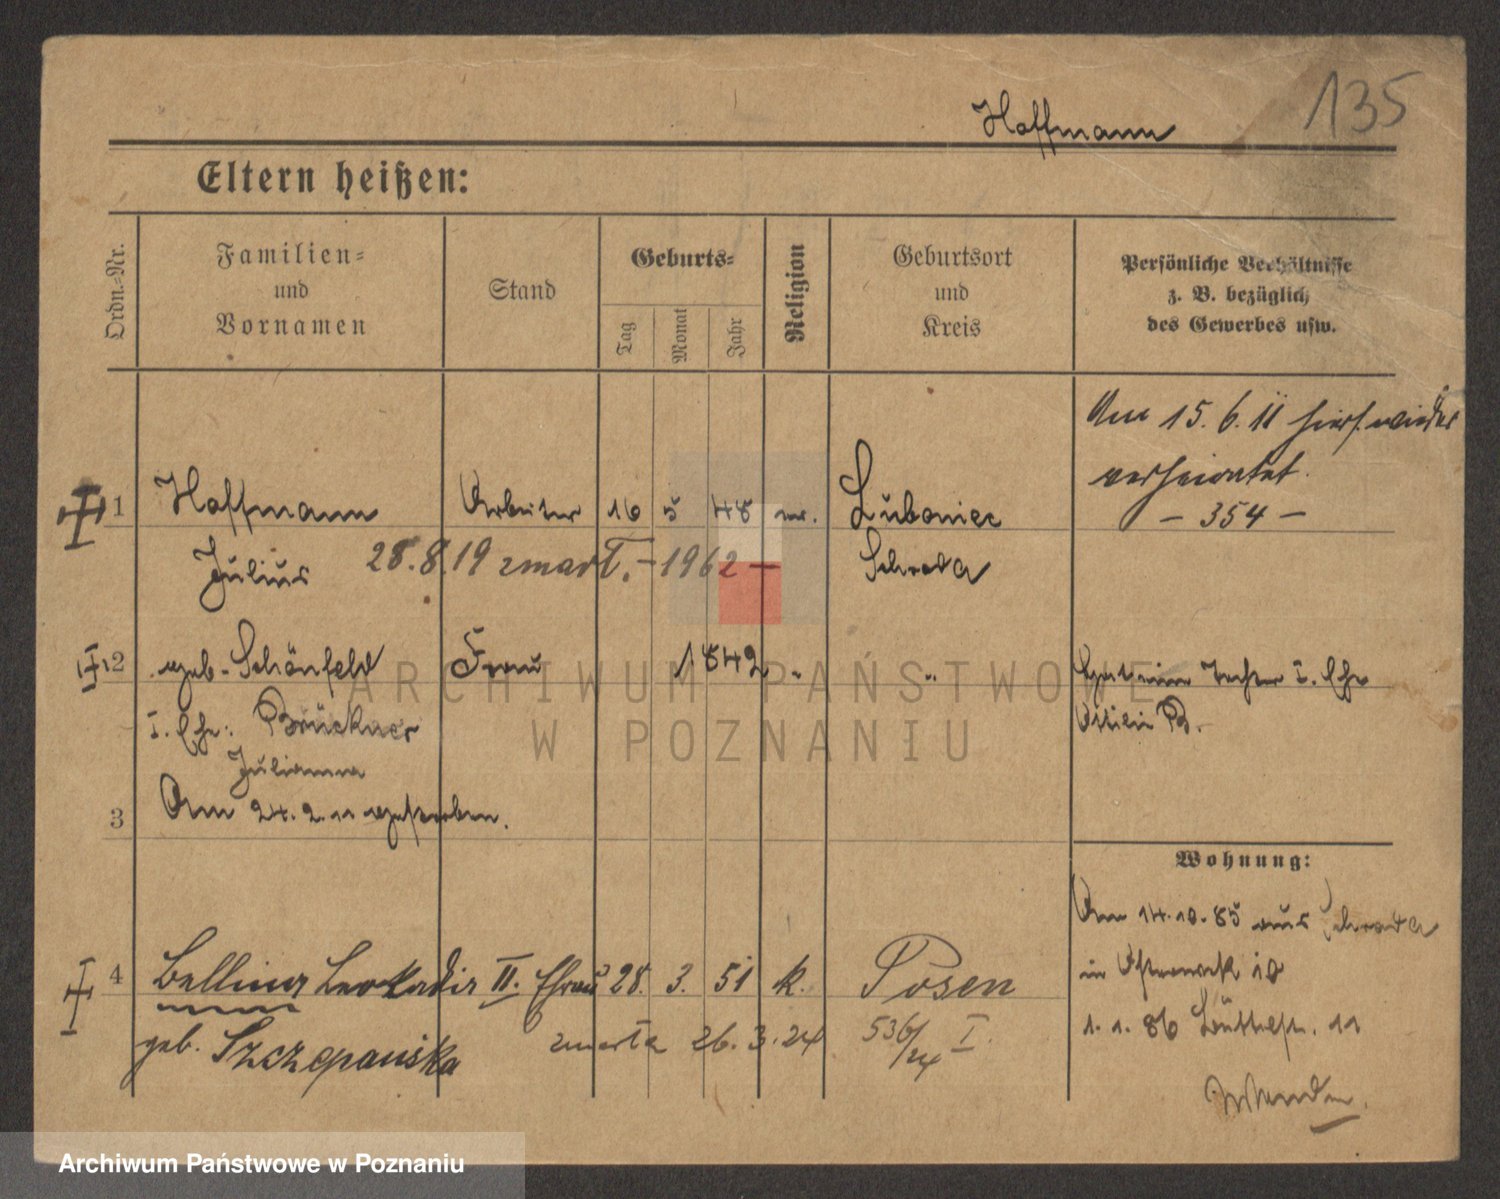 135
Hoffmann
Eltern heißen:
Ordn.-Nr.
Familien-
und
Vornamen
Stand
Geburts-
Tag
Monat
Jahr
Religion
Geburtsort
und
Kreis
Persönliche Verhältnisse
z. B. bezüglich
des Gewerbes usw.
Am 15. 6. 11 hier wieder
verheiratet.
— 354 —
1 Hoffmann Arbeiter 16 5 48 ev.
Schroda
Julius 28.8.19 zmarł. – 1962 —
2 geb. Schönfeld Frau 1842 " "
Hat eine Tochter I. Ehe
Ottilie B.
I. Ehe: Brückner
Julianna
3 Am 24. 2. 11 gestorben.
Wohnung:
Am 14.10.85 aus Schroda
in Ostrowek 10
1. 1. 86 11
Wenden.
4 Bellina Leokadia II. Ehefrau 28. 3. 51 k. Posen
geb. Szczepańska zmarła 26. 3. 24 536/24 I.
ARCHIWUM PAŃSTWOWE
W POZNANIU
Archiwum Państwowe w Poznaniu